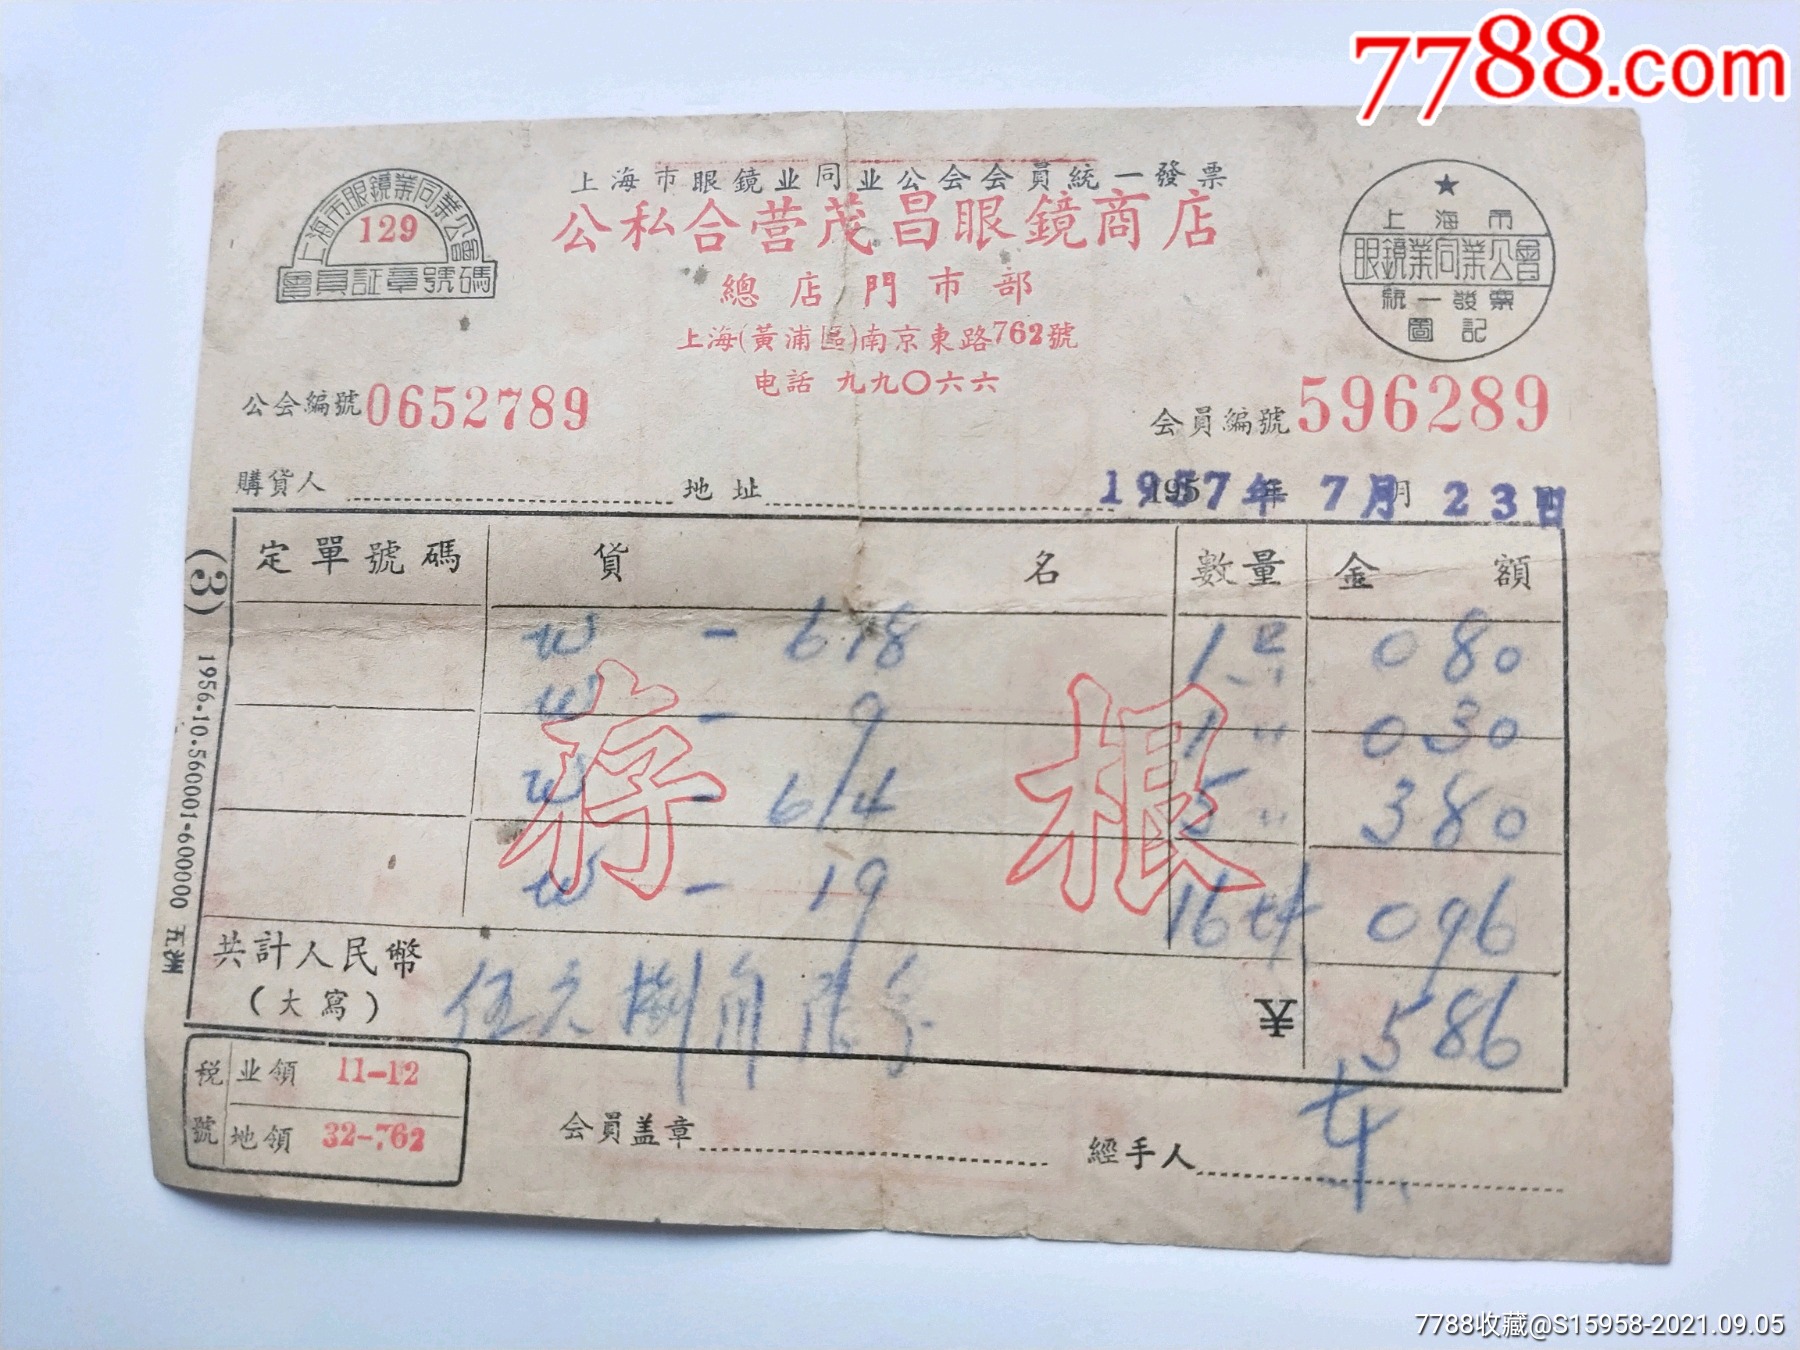 7788.com
上海市眼鏡業同業公會
129
會員証章號碼
上海市眼鏡业同业公会会員統一發票
公私合营茂昌眼鏡商店
總店門市部
上海(黃浦區)南京東路762號
电話 九九〇六六
★
上海市
眼鏡業同業公會
統一發票
圖記
公会編號0652789
会員編號596289
購貨人 地址 1957年 7月 23日
定單號碼 貨名 數量 金額
W - 618 1只 0 80
W - 9 1〃 0 30
W - 614 5〃 3 80
W - 19 16 0 96
存根
共計人民幣
(大寫)
伍元捌角陸分 5 86
(3) 1956·10·560001-600000 五
稅號 业領 11-12
地領 32-762
会員盖章
經手人
7788收藏@S15958-2021.09.05